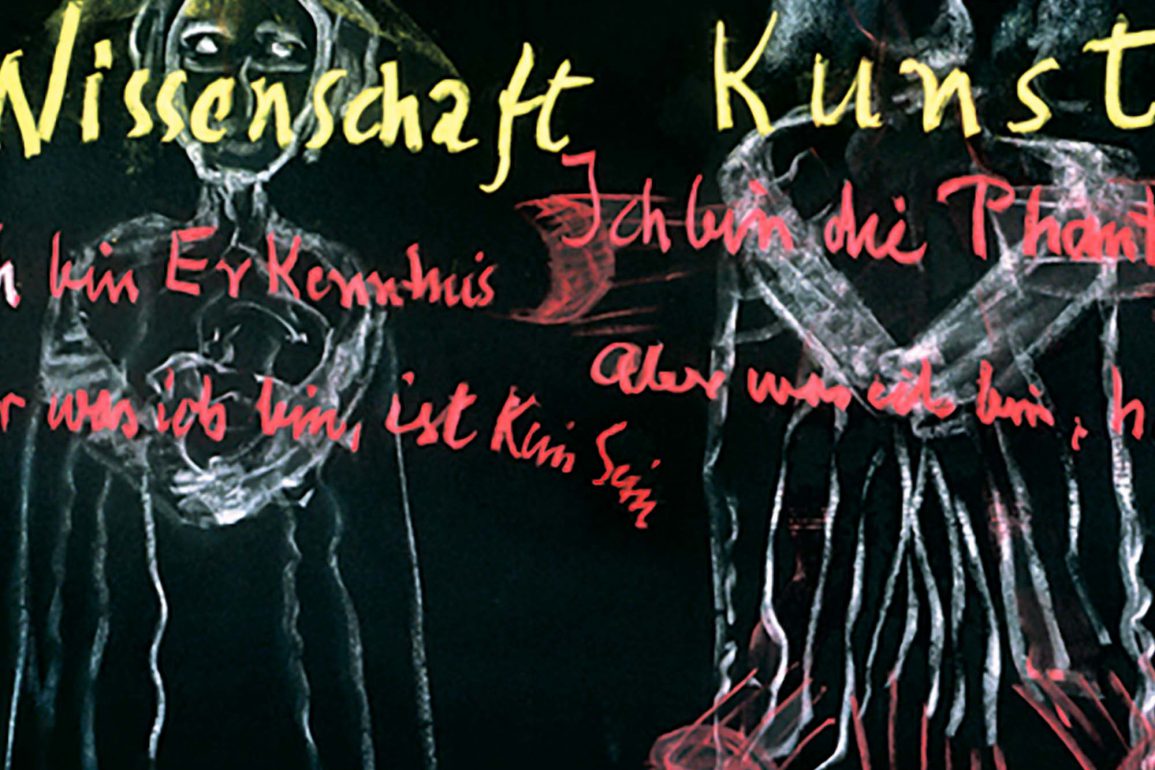 Wissenschaft
Kunst
bin Erkenntnis
was ich bin, ist Kein Sein
Ich bin die Phant
Aber was ich bin, h